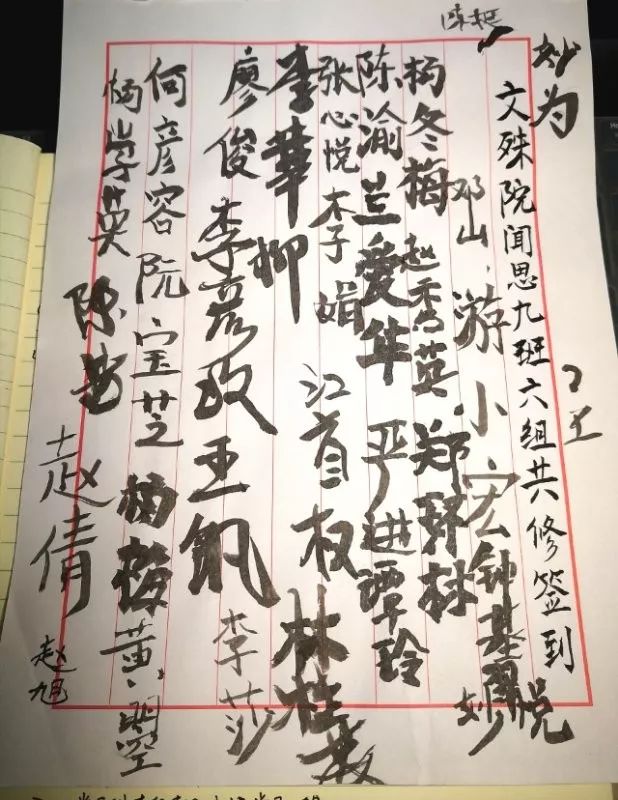 陈挺
妙为
文殊院闻思九班六组共修签到
邓山 游小宏 钟基 妙悦
杨冬梅 赵秀英 郑琴林
陈渝兰 爱华 严进 谭玲
张心悦 木子 娟 江首权 林桂
李华柳
廖俊 李彦玫 王凯 李莎
何彦容 阮宝芝 杨梅 黄
杨学英 陈
赵倩
赵旭